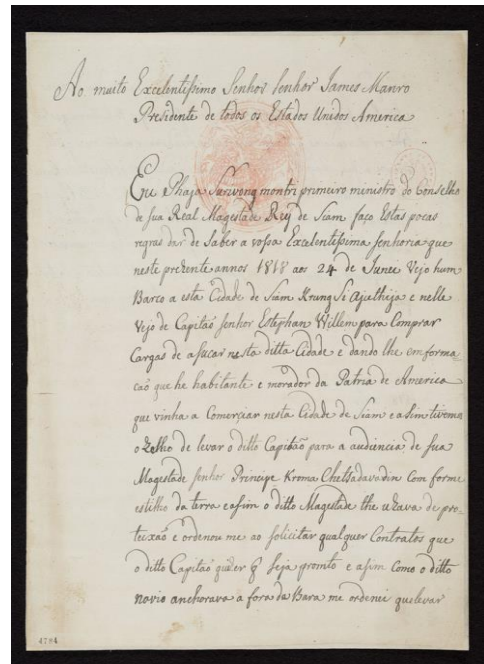 Ao muito Excelentissimo Senhor Senhor James Manro
Presidente de todos os Estados Unidos America
Eu Phaja Suriwong montri primeiro ministro do Conselho
de sua Real Magestade Rey de Siam faço Estas pocas
regras dar de Saber a vossa Excelentissima senhoria que
neste prezente annos 1818 aos 24 de Junei Vejo hum
Barco a esta Cidade de Siam Krung Si ajuthija e nelle
Vejo de Capitaõ senhor Estephan Willem para Comprar
Cargas de asucar nesta ditta Cidade e dando lhe emforma-
caõ que he habitante e morador da Patria de America
que vinha a Comerçear nesta Cidade de Siam e asim tivemos
o Zelho de levar o ditto Capitaõ para a audiencia de sua
Magestade senhor Principe Kroma Chetsadavadin Com forme
estilho da terra e asim o ditto Magestade lhe uzava de pro-
teixaõ e ordenou me ao solicitar qualquer Contratos que
o ditto Capitaõ quizer q̃ seja promto e asim Como o ditto
navio anchorava a fora da Bara me ordenei que levar
4784